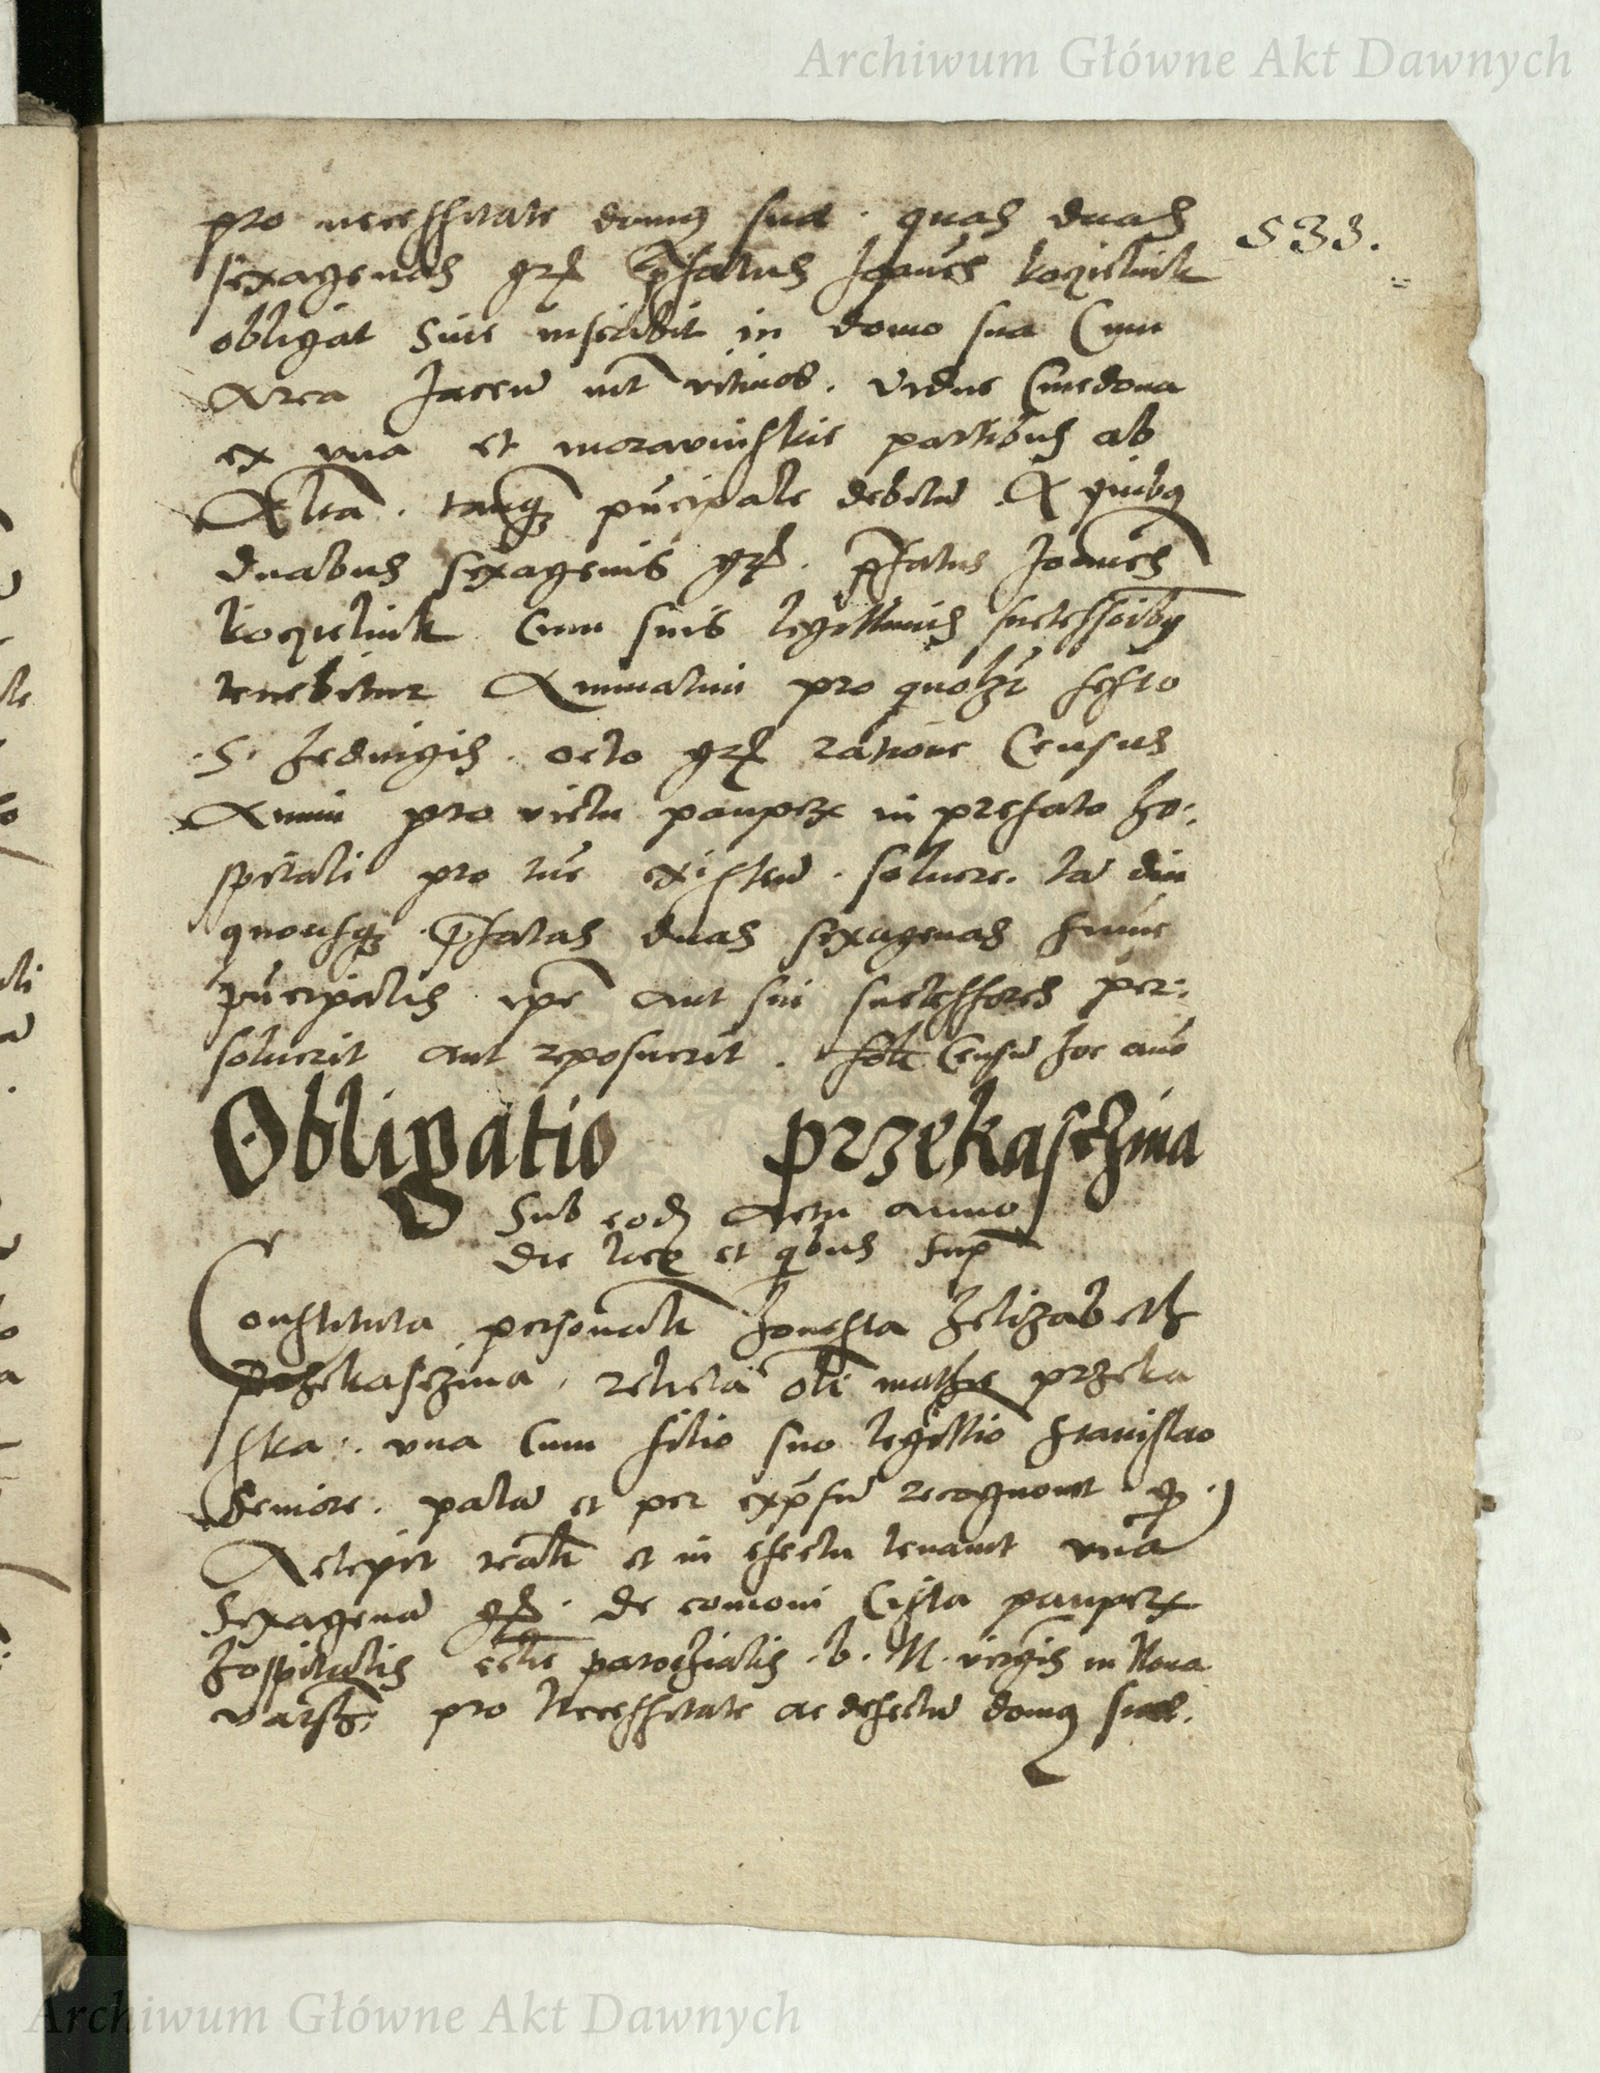 Archiwum Główne Akt Dawnych
533.
pro necessitate domus suae. quas duas
sexagenas gr. prefatus Joannes koczielnik
obligat suis inscribit in domo sua Cum
Area Jacen. int. vicinos. vidue
ex vna et moravinskie partibus ab
Altera. tanq. principale debitum. A quibus
duabus sexagenis gr. prefatus Joannes
koczielnik Cum suis legittimis successoribus
tenebitur Annuatim pro quolibet festo
S. Hedvigis. octo gr. ratione Census
Annui pro victu pauperum in prefato ho:
spitali pro tunc existen. soluere. tam diu
quousq. prefatas duas sexagenas summe
principalis ipse aut sui successores per:
soluerit aut reposuerit. Census hoc anno
Obligatio przekasczina
Sub eodem Actu anno
die loco et quibus supra
Constituta personaliter honesta helizabeth
przekasczina, relicta olim mathie przeka
ska. vna Cum filio suo legittimo Stanislao
Seniore. palam et per expressum recognouit q.
Accepit realiter et in efectu leuauit vnam
Sexagenam gr. de comoni Cista pauperum
hospitalis ecclie parochialis. b. M. virginis in Noua
varsch. pro Necessitate ac defectum domus suae.
Archiwum Główne Akt Dawnych